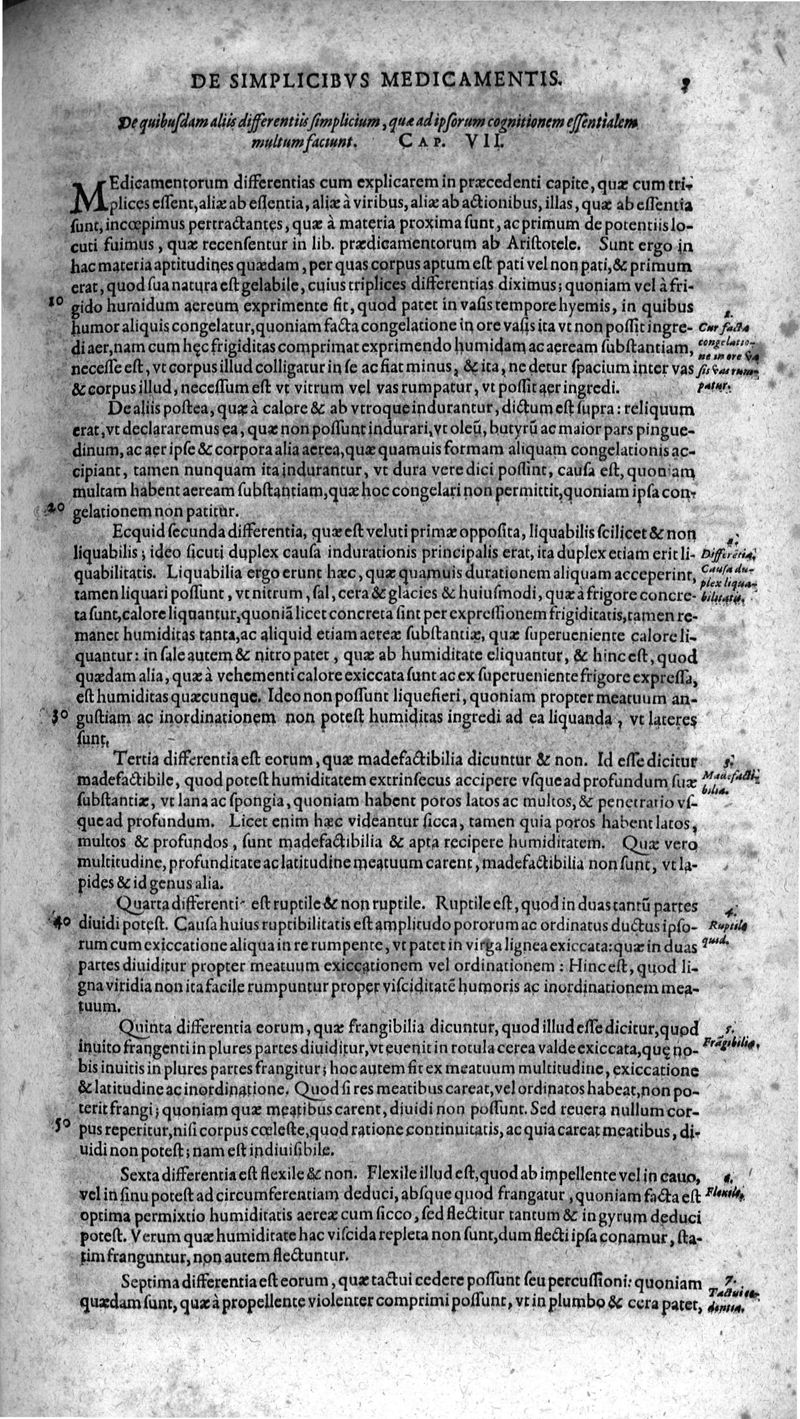 DE SIMPLICIBVS MEDICAMENTIS.
De quibuſdam aliis differentiis ſimplicium, quæ ad ipſorum cognitionem eſſentialem
multum faciunt. CAP. VII.
MEdicamentorum differentias cum explicarem in præcedenti capite, quæ cum tri-
plices eſſent, aliæ ab eſſentia, aliæ à viribus, aliæ ab actionibus, illas, quæ ab eſſentia
ſunt, incœpimus pertractantes, quæ à materia proxima ſunt, ac primum de potentiis lo-
cuti fuimus, quæ recenſentur in lib. prædicamentorum ab Ariſtotele. Sunt ergo in
hac materia aptitudines quædam, per quas corpus aptum eſt pati vel non pati, & primum
erat, quod ſua natura eſt gelabile, cuius triplices differentias diximus; quoniam vel à fri-
10 gido humidum aereum exprimente fit, quod patet in vaſis tempore hyemis, in quibus
humor aliquis congelatur, quoniam facta congelatione in ore vaſis ita vt non poſſit ingre-
di aer, nam cum hęc frigiditas comprimat exprimendo humidam ac aeream ſubſtantiam,
neceſſe eſt, vt corpus illud colligatur in ſe ac fiat minus, & ita, ne detur ſpacium inter vas
& corpus illud, neceſſum eſt vt vitrum vel vas rumpatur, vt poſſit aer ingredi.
1.
Cur facta
congelatio-
ne in ore va
ſis vas rum-
patur.
De aliis poſtea, quæ à calore & ab vtroque indurantur, dictum eſt ſupra: reliquum
erat, vt declararemus ea, quæ non poſſunt indurari, vt oleũ, butyrũ ac maior pars pingue-
dinum, ac aer ipſe & corpora alia aerea, quæ quamuis formam aliquam congelationis ac-
cipiant, tamen nunquam ita indurantur, vt dura vere dici poſſint, cauſa eſt, quoniam
multam habent aeream ſubſtantiam, quæ hoc congelari non permittit, quoniam ipſa con-
20 gelationem non patitur.
Ecquid ſecunda differentia, quæ eſt veluti primæ oppoſita, liquabilis ſcilicet & non
liquabilis; ideo ſicuti duplex cauſa indurationis principalis erat, ita duplex etiam erit li-
quabilitatis. Liquabilia ergo erunt hæc, quæ quamuis durationem aliquam acceperint,
tamen liquari poſſunt, vt nitrum, ſal, cera & glacies & huiuſmodi, quæ à frigore concre-
ta ſunt, calore liquantur, quoniã licet concreta ſint per expreſſionem frigiditatis, tamen re-
manet humiditas tanta, ac aliquid etiam aereæ ſubſtantiæ, quæ ſuperueniente calore li-
quantur: in ſale autem & nitro patet, quæ ab humiditate eliquantur, & hinc eſt, quod
quædam alia, quæ à vehementi calore exiccata ſunt ac ex ſuperueniente frigore expreſſa,
eſt humiditas quæcunque. Ideo non poſſunt liquefieri, quoniam propter meatuum an-
30 guſtiam ac inordinationem non poteſt humiditas ingredi ad ea liquanda, vt lateres
ſunt.
2.
Differẽtia.
Cauſa du-
plex liqua-
bilitatis.
Tertia differentia eſt eorum, quæ madefactibilia dicuntur & non. Id eſſe dicitur
madefactibile, quod poteſt humiditatem extrinſecus accipere vſque ad profundum ſuæ
ſubſtantiæ, vt lana ac ſpongia, quoniam habent poros latos ac multos, & penetratio vſ-
que ad profundum. Licet enim hæc videantur ſicca, tamen quia poros habent latos,
multos & profundos, ſunt madefactibilia & apta recipere humiditatem. Quæ vero
multitudine, profunditate ac latitudine meatuum carent, madefactibilia non ſunt, vt la-
pides & id genus alia.
3.
Madefacti-
bilia.
Quarta differenti eſt ruptile & non ruptile. Ruptile eſt, quod in duas tantũ partes
40 diuidi poteſt. Cauſa huius ruptibilitatis eſt amplitudo pororum ac ordinatus ductus ipſo-
rum cum exiccatione aliqua in re rumpente, vt patet in virga lignea exiccata: quæ in duas
partes diuiditur propter meatuum exiccationem vel ordinationem: Hinc eſt, quod li-
gna viridia non ita facile rumpuntur proper viſciditatẽ humoris ac inordinationem mea-
tuum.
4.
Ruptile
quid.
Quinta differentia eorum, quæ frangibilia dicuntur, quod illud eſſe dicitur, quod
inuito frangenti in plures partes diuiditur, vt euenit in rotula cerea valde exiccata, quę no-
bis inuitis in plures partes frangitur; hoc autem fit ex meatuum multitudine, exiccatione
& latitudine ac inordinatione. Quod ſi res meatibus careat, vel ordinatos habeat, non po-
terit frangi; quoniam quæ meatibus carent, diuidi non poſſunt. Sed reuera nullum cor-
50 pus reperitur, niſi corpus cœleſte, quod ratione continuitatis, ac quia careat meatibus, di-
uidi non poteſt; nam eſt indiuiſibile.
5.
Frãgibilia.
Sexta differentia eſt flexile & non. Flexile illud eſt, quod ab impellente vel in cauo,
vel in ſinu poteſt ad circumferentiam deduci, abſque quod frangatur, quoniam facta eſt
optima permixtio humiditatis aereæ cum ſicco, ſed flectitur tantum & in gyrum deduci
poteſt. Verum quæ humiditate hac viſcida repleta non ſunt, dum flecti ipſa conamur, ſta-
tim franguntur, non autem flectuntur.
6.
Flexile.
Septima differentia eſt eorum, quæ tactui cedere poſſunt ſeu percuſſioni: quoniam
quædam ſunt, quæ à propellente violenter comprimi poſſunt, vt in plumbo & cera patet,
7.
Tactui ce-
dentia.